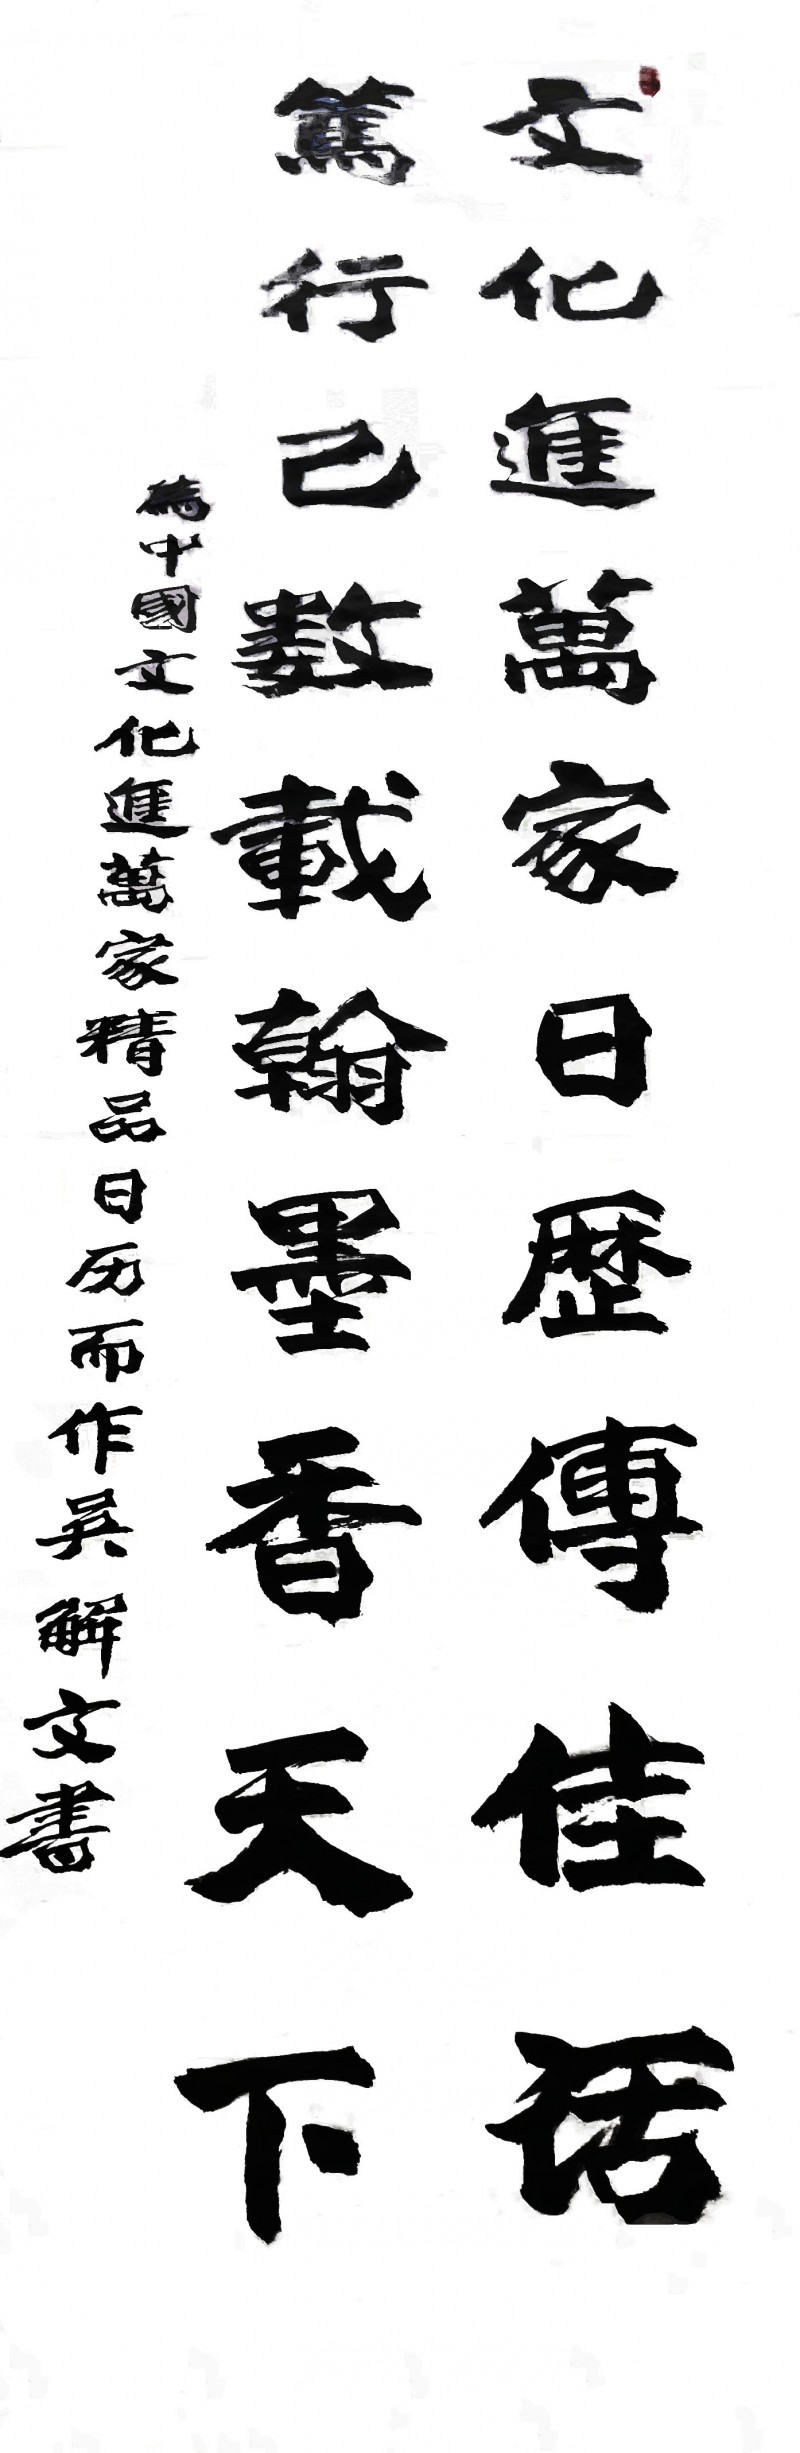 文化進萬家日歷傳佳话
篤行已数載翰墨香天下
為中國文化進萬家精品日历而作吴解文書